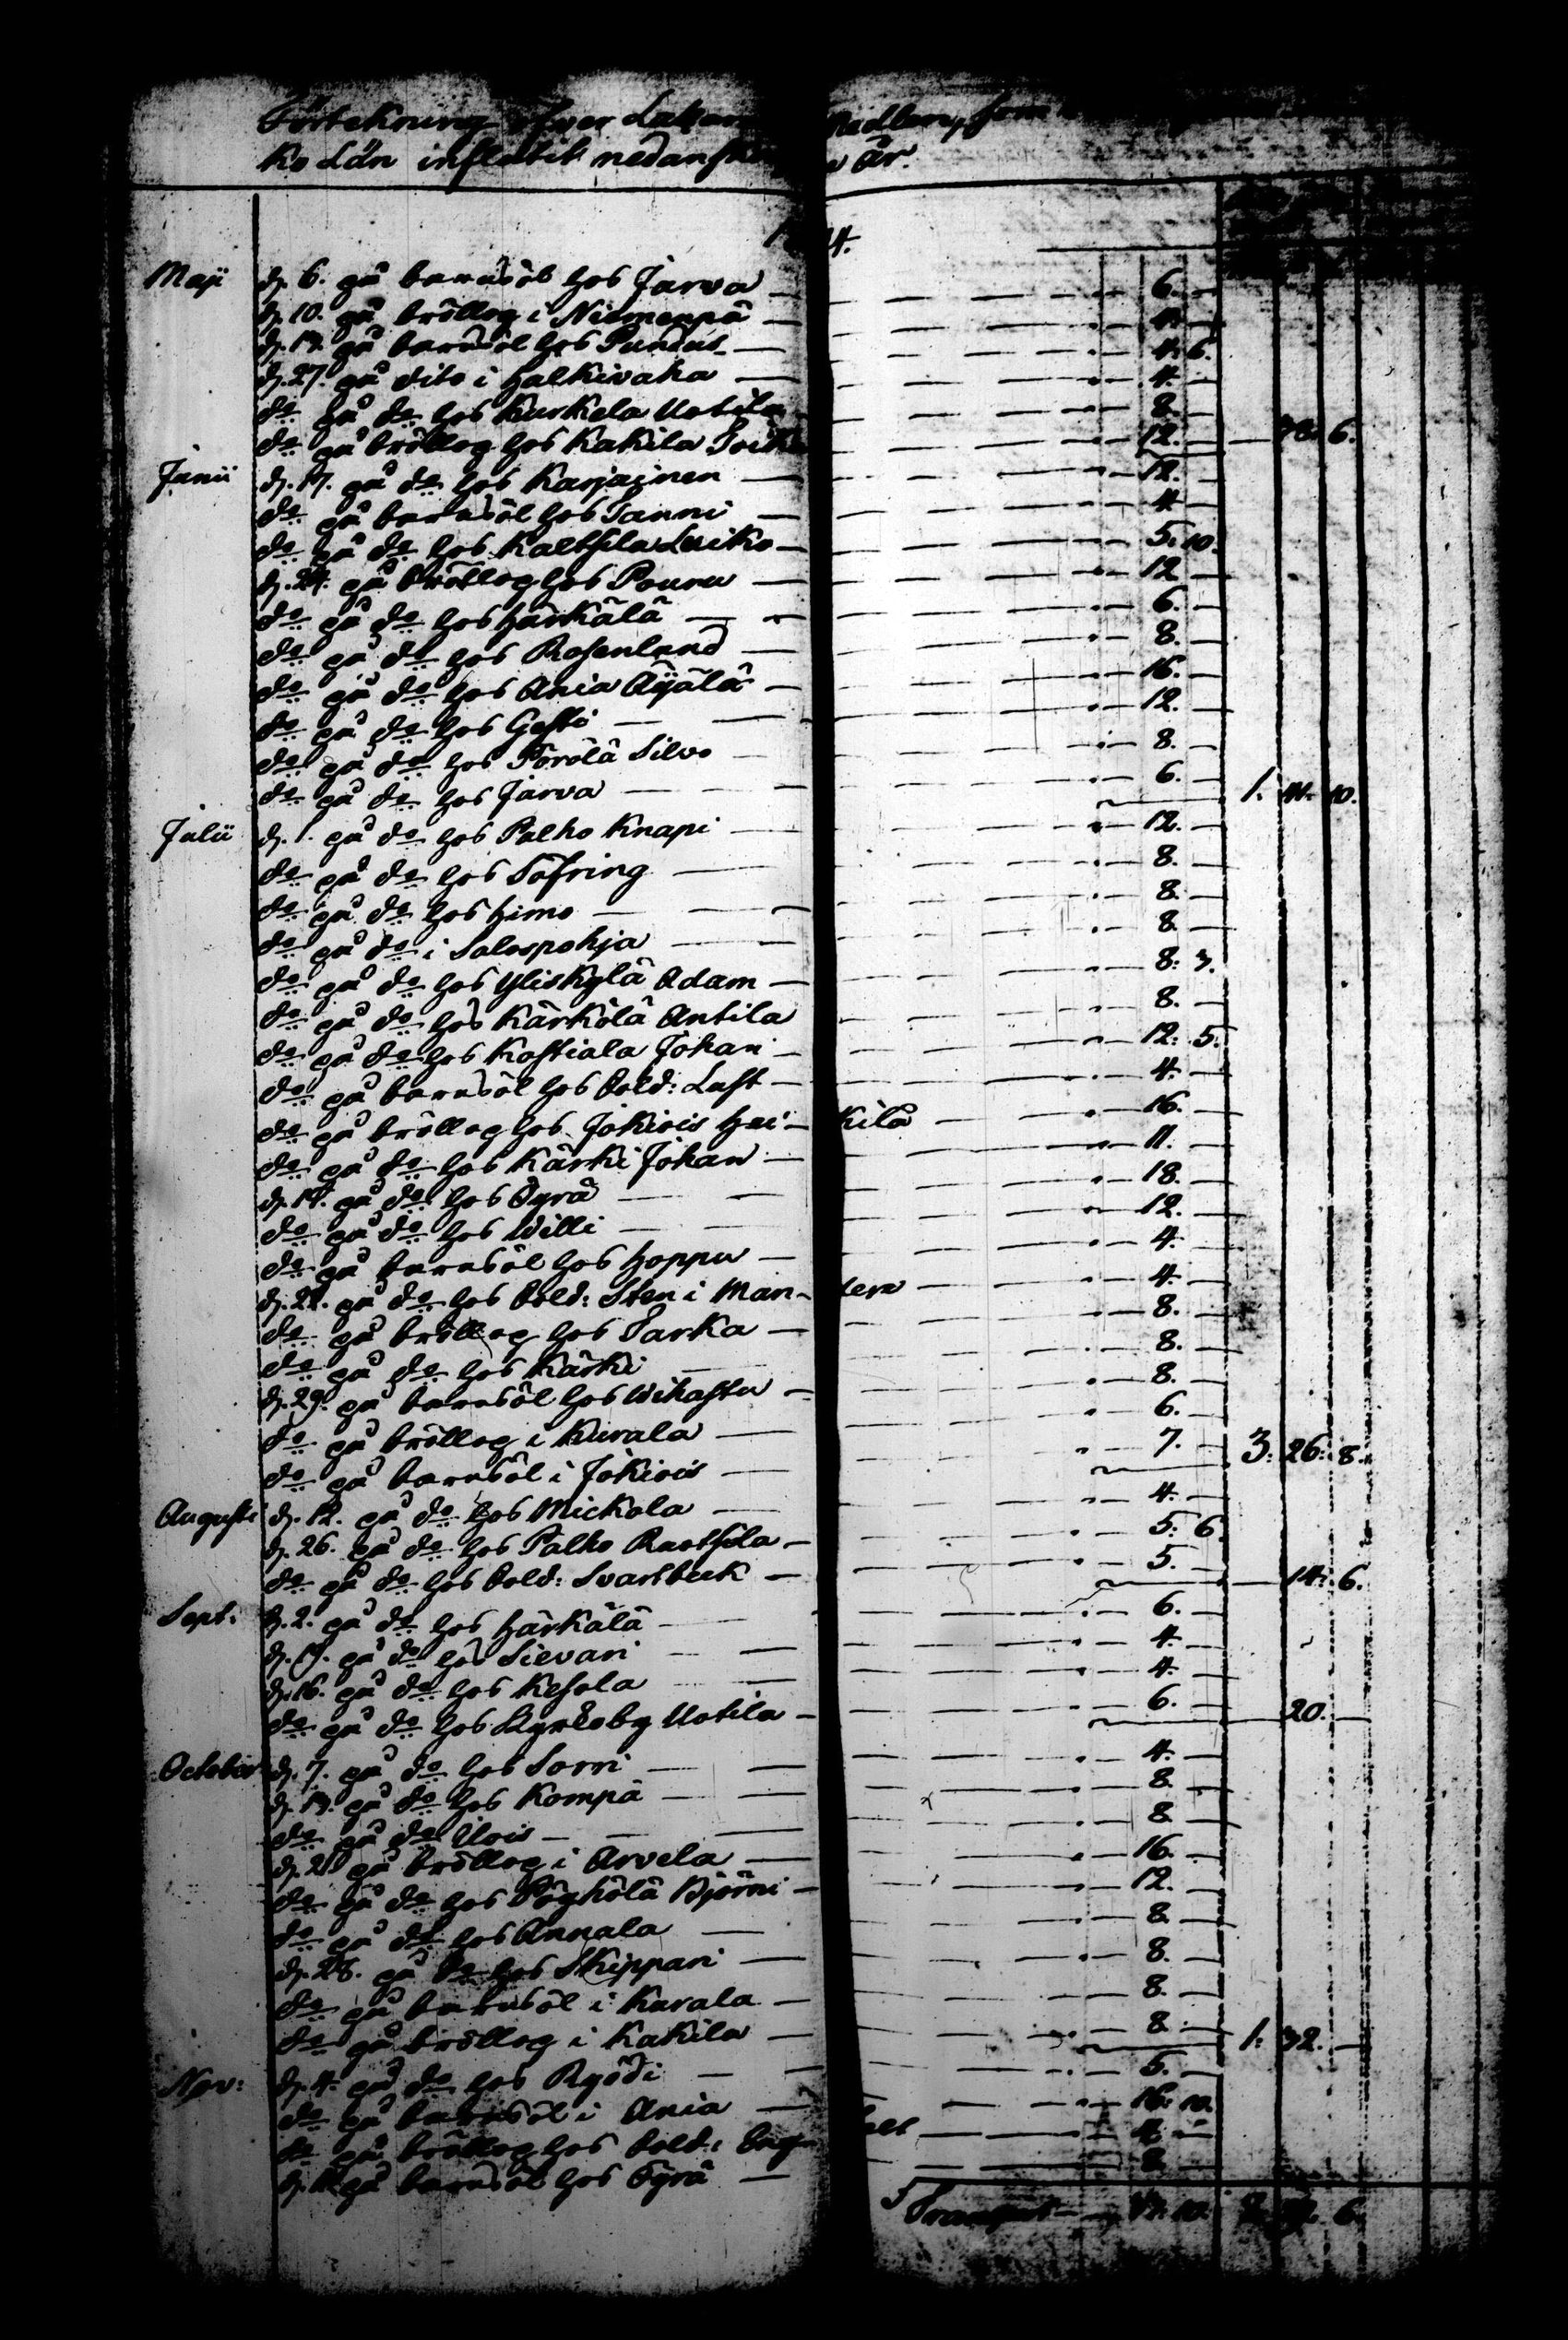 Förtekning öfver Lazare Medlen, som
ko Län influtit nedanskr år.
Maji d. 6. på barnsöl hos Jarva — 6. —
d. 10. på bröllog i Niemenpä — 4. —
d. 13. på barnsöl hos Pundus — 4. 6.
d. 27. på dito i Halkivaha — 4. —
do på do hos Kurkela Uotila — 8. —
do på bröllog hos Kakila — 12. — 38. 6.
Junii d. 17. på do hos Karjainen — 12. —
do på barnsöl hos Tanni — 4. —
do på do hos Kaltsila Luiko — 5. 10.
d. 24. på bröllog hos Pouru — 12 —
do på do hos Härkälä — 6. —
do på do hos Rosenlund — 8. —
do på do hos Ania Äijälä — 16. —
do på do hos Gesti — 12. —
do på do hos Pörölä Silvo — 8. —
do på do hos Jarva — 6. — 1. 41. 10.
Julii d. 1. på do hos Palho Knapi — 12. —
do på do hos Säfring — 8. —
do på do hos Himo — 8. —
do på do i Salospohja — 8. —
do på do hos Yliskylä Adam — 8: 3.
do på do hos Kärkölä Antila — 8. —
do på do hos Kostiala Johan — 12: 5.
do på barnsöl hos Sold: Lust — 4. —
do på bröllog hos Jokiois Hei-kilä — 16. —
do på do hos Kärki Johan — 11. —
d. 14. på do hos Öyrä — 18. —
do på do hos Willi — 12. —
do på barnsöl hos Hoppu — 4. —
d. 22. på do hos Sold: Sten i Man-tere — 4. —
do på bröllog hos Tarka — 8. —
do på do hos Kärki — 8. —
d. 29. på barnsöl hos Wihastu — 8. —
do på bröllog i Kurala — 6. —
do på barnsöl i Jokiois — 7. — 3: 26: 8.
Augusti d. 12. på do hos Mickola — 4. —
d. 26. på do hos Palho Ruotsila — 5: 6.
do på do hos Sold: Svartbeck — 5. — 14: 6.
Sept: d. 2. på do hos Härkälä — 6. —
d. 9. på do hos Sievari — 4. —
d. 16. på do hos Kesola — 4. —
do på do hos Kyrköby Uotila — 6. — 20. —
October d. 7. på do hos Sorri — 4. —
d. 13. på do hos Kompä — 8. —
do på do Uois — 8. —
d. 21 på bröllog i Arvela — 16. —
do på do hos Pöyhölä Björni — 12. —
do på do hos Annala — 8. —
d. 28. på do hos Skippari — 8. —
do på barnsöl i Kurala — 8. —
do på bröllog i Kakila — 8. — 1: 32. —
Nov: d. 4. på do hos Ryödi — 5. —
do på barnsöl i Ania — 16: 10.
do på bröllog hos Sold: — 4. —
på barnsöl hos Öyrä — 8. —
Transport — 6.